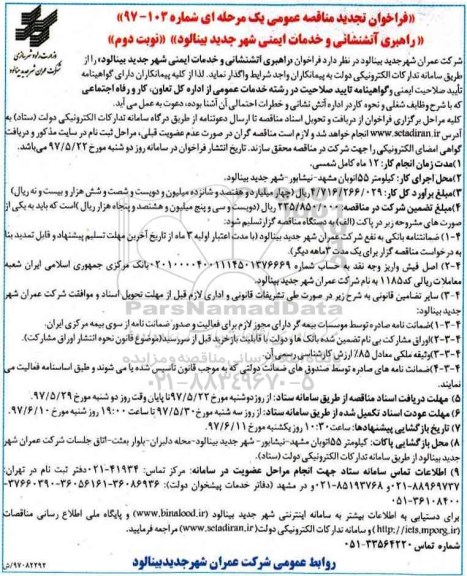 «فراخوان تجدید مناقصه عمومی یک مرحله ای شماره ۱۰۳-۹۷»
«راهبری آتشنشانی و خدمات ایمنی شهر جدید بینالود» «نوبت دوم»
وزارت راه و شهرسازی
شرکت عمران شهر جدید بینالود
شرکت عمران شهر جدید بینالود در نظر دارد فراخوان «راهبری آتشنشانی و خدمات ایمنی شهر جدید بینالود» را از
طریق سامانه تدارکات الکترونیکی دولت به پیمانکاران واجد شرایط واگذار نماید. لذا از کلیه پیمانکاران دارای گواهینامه
تأیید صلاحیت ایمنی و گواهینامه تایید صلاحیت در رشته خدمات عمومی از اداره کل تعاون، کار و رفاه اجتماعی
که با شرح وظایف شغلی و نحوه کار در اداره آتش نشانی و خطرات احتمالی آن آشنا بوده، دعوت به عمل می آید.
کلیه مراحل برگزاری فراخوان از دریافت و تحویل اسناد مناقصه تا ارسال دعوتنامه از طریق درگاه سامانه تدارکات الکترونیکی دولت (ستاد) به
آدرس www.setadiran.ir انجام خواهد شد و لازم است مناقصه گران در صورت عدم عضویت قبلی، مراحل ثبت نام در سایت مذکور و دریافت
گواهی امضای الکترونیکی را جهت شرکت در مناقصه محقق سازند. تاریخ انتشار فراخوان در سامانه روز دو شنبه مورخ ۹۷/۵/۲۲ می باشد.
۱) مدت زمان انجام کار: ۱۲ ماه کامل شمسی.
۲) محل اجرای کار: کیلومتر ۵۵ اتوبان مشهد-نیشابور-شهر جدید بینالود.
۳) مبلغ برآورد کل کار: ۴/۷۱۶/۲۶۶/۰۲۹ ریال (چهار میلیارد و هفتصد و شانزده میلیون و دویست و شصت و شش هزار و بیست و نه ریال)
۴) مبلغ تضمین شرکت در مناقصه: ۲۳۵/۸۵۰/۰۰۰ ریال (دویست و سی و پنج میلیون و هشتصد و پنجاه هزار ریال) است که باید به یکی از
صورت های مشروحه زیر در پاکت (الف) به دستگاه مناقصه گزار تسلیم شود:
۴-۱) ضمانتنامه بانکی به نفع شرکت عمران شهر جدید بینالود (با مدت اعتبار اولیه ۳ ماه از تاریخ آخرین مهلت تسلیم پیشنهاد و قابل تمدید بنا
به درخواست مناقصه گزار برای یک مدت ۳ ماهه دیگر).
۴-۲) اصل فیش واریز وجه نقد به حساب شماره بانک مرکزی جمهوری اسلامی ایران شعبه
معاملات ریالی کد ۱۱۸۵ به نام شرکت عمران شهر جدید بینالود.
۴-۳) سایر تضامین قانونی به شرح زیر در صورت طی تشریفات قانونی و اداری لازم قبل از مهلت تحویل اسناد و موافقت شرکت عمران شهر
جدید بینالود:
۴-۳-۱) ضمانت نامه صادره توسط موسسات بیمه گر دارای مجوز لازم برای فعالیت و صدور ضمانت نامه از سوی بیمه مرکزی ایران.
۴-۳-۲) اوراق مشارکت بی نام تضمین شده بانک ها و دولت با قابلیت باز خرید قبل از سررسید (موضوع قانون نحوه انتشار اوراق مشارکت).
۴-۳-۳) وثیقه ملکی معادل ۸۵٪ ارزش کارشناسی رسمی آن
۴-۳-۴) ضمانت نامه های صادره توسط صندوق های ضمانت دولتی که به موجب قانون تاسیس شده یا می شوند و طبق اساسنامه فعالیت می
نمایند.
۵) مهلت دریافت اسناد مناقصه از طریق سامانه ستاد: از روز دوشنبه مورخ ۹۷/۵/۲۲ تا پایان وقت روز دو شنبه مورخ ۹۷/۵/۲۹.
۶) مهلت عودت اسناد تکمیل شده از طریق سامانه ستاد: از روز سه شنبه مورخ ۹۷/۵/۳۰ تا ساعت ۱۹:۰۰ روز شنبه مورخ ۹۷/۶/۱۰.
۷) تاریخ بازگشایی پیشنهادها: ساعت ۱۰:۳۰ روز یکشنبه مورخ ۹۷/۶/۱۱
۸) محل بازگشایی پاکات: کیلومتر ۵۵ اتوبان مشهد-نیشابور- شهر جدید بینالود-محله دلبران-بلوار بعثت-اتاق جلسات شرکت عمران شهر
جدید بینالود از طریق سامانه تدارکات الکترونیکی دولت (ستاد).
۹) اطلاعات تماس سامانه ستاد جهت انجام مراحل عضویت در سامانه: مرکز تماس: ۴۱۹۳۴-۰۲۱ دفتر ثبت نام در تهران:
۸۸۹۶۹۷۳۷-۰۲۱ و ۸۵۱۹۳۷۶۸-۰۲۱ و در مشهد (دفاتر خدمات پیشخوان دولت): ۳۶۰۸۶۹۳۶-۳۶۰۵۶۱۶۱-۳۷۶۶۰۳۹۰-
۳۶۱۰۸۴۰۰-۰۵۱
برای دستیابی به اطلاعات بیشتر به سامانه اینترنتی شهر جدید بینالود (www.binalood.ir) و پایگاه ملی اطلاع رسانی مناقصات
(http://iets.mporg.ir) و سامانه تدارکات الکترونیکی دولت (www.setadiran.ir) مراجعه فرمایید.
شماره تماس ۳۳۵۶۴۲۲۰-۰۵۱
روابط عمومی شرکت عمران شهر جدید بینالود
۹۷۰۸۲۲۹۲/ش
ParsNamadData
۰۲۱-۸۸۳۴۹۶۷۰-۵